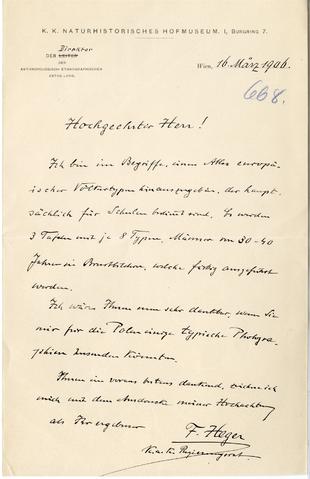 K. K. NATURHISTORISCHES HOFMUSEUM. I, BURGRING 7.
Direktor
DER LEITER
DER
ANTHROPOLOGISCH-ETHNOGRAPHISCHEN
ABTHEILUNG.
Wien, 16. März 1906.
668.
Hochgeehrter Herr!
Ich bin im Begriffe, einen Atlas europä-
ischer Völkertypen herauszugeben, der haupt-
sächlich für Schulen bestimmt wird. Es werden
3 Tafeln mit je 8 Typen, Männer von 30-40
Jahren in Brustbildern, welche färbig ausgeführt
werden.
Ich wäre Ihnen nun sehr dankbar, wenn Sie
mir für die Polen einige typische Photogra-
phien zusenden könnten.
Ihnen im voraus bestens dankend, zeichne ich
mich mit dem Ausdrucke meiner Hochachtung
als Ihr ergebener
F. Heger
k. u. k. Regierungsrat